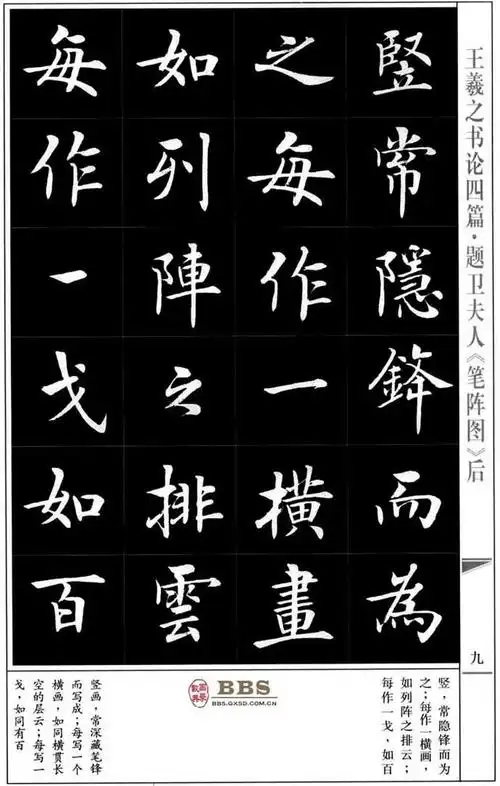 王羲之书论四篇·题卫夫人《笔阵图》后
九
竖常隱鋒而為
之每作一橫畫
如列陣之排雲
每作一戈如百
竖，常隐锋而为
之；每作一横画，
如列阵之排云；
每作一戈，如百
BBS
BBS.GXSD.COM.CN
竖画，常深藏笔锋
而写成；每写一个
横画，如同横贯长
空的层云；每写一
戈，如同有百